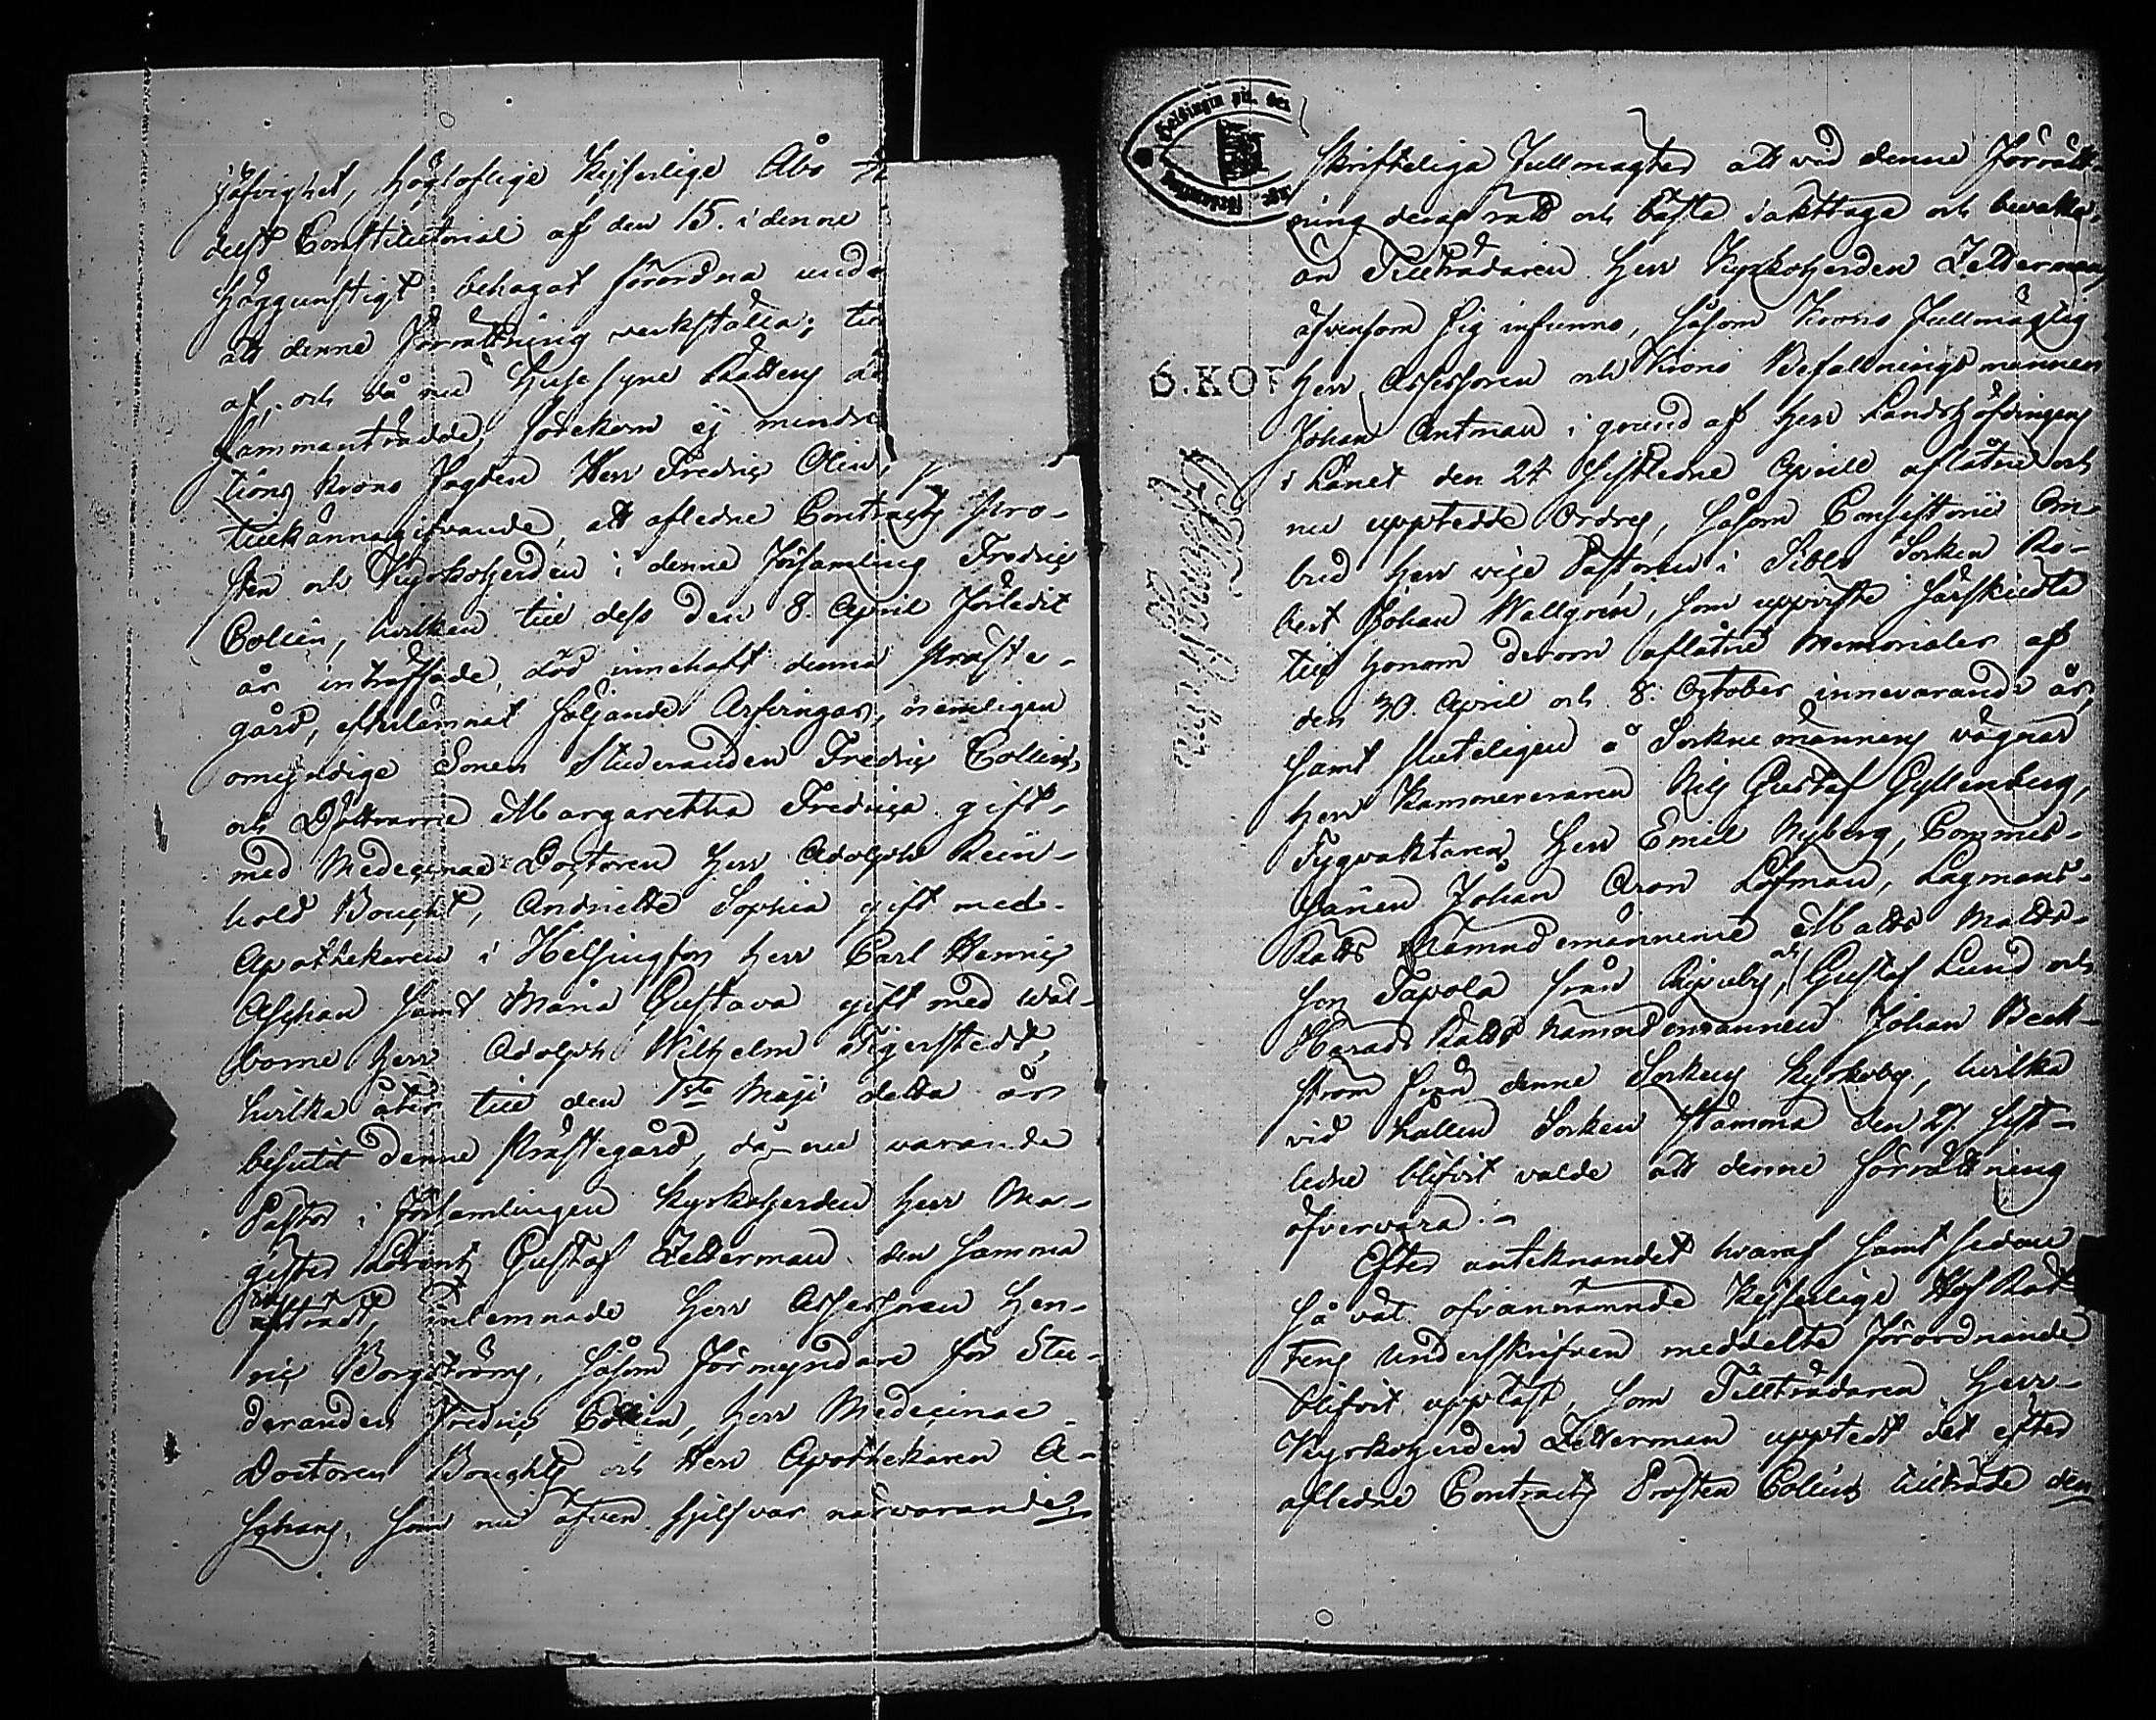 jäfvighet, Högloflige Kejserlige Åbo
delst Constitutorial af den 15. i denne
Höggunstigt behagat förordna
att denne förrättning verkställa;
af, och då nu Husesyns Rätten
sammanträdde, förekom ej mindre
Krono Fogden Herr Fredric Olin,
tillkännagifvande, att afledne Contracts Pro-
sten och Kyrkoherden i denne Församling Fredric
Collin, hvilken till dess den 8. April förledit
år inträffade död innehaft denna Präste-
gård, efterlämnat följande Arfvingar, nemligen
omyndige Sonen Studeranden Fredric Collin,
och Döttrarne Margaretha Fredrica gift
med Medecinae Doctoren Herr Adolph Rein-
hold Bought, Andriette Sophia gift med
Apothekaren i Helsingfors Herr Carl Henric
Aschan samt Maria Gustava gift med Wäl-
borne Herr Adolph Wilhelm Tigerstedt,
hvilka åter till den 1sta Maji detta år
besutit denne Prästegård, då nu warande
Pastor i Församlingen Kyrkoherden Herr Ma-
gister Lorentz Gustaf Zetterman den samma
tillträdt, inlemnade Herr Assessoren Hen-
ric Borgström, såsom Förmyndare för Stu-
deranden Fredric Collin, Herr Medecinae
Doctoren Boughts och Herr Apothekaren A-
schans, som nu äfven sjelf var närvarande,
Helsingin pit.
skrifteliga Fullmagter att wid denne Förrätt-
ning deras rätt och bästa iakttaga och bevaka,
än Tillträdaren Herr Kyrkoherden Zetterman
äfvensom sig infunno, såsom Krono Fullmägtig
6. KOP
Herr Assessoren och Krono Befallningsmannen
Johan Antman i grund af Herr Landshöfdingens
i Länet den 24 sistledne Aprill aflåtne och
nu uppte­dde Ordres, såsom Consistorii Om-
bud Herr vice Pastoren i Sibbo Socken Ro-
bert Johan Wallgrén, som uppviste särskildta
till honom derom aflåtne Memorialer af
den 30. April och 8. October innevarande år,
samt sluteligen å Sockne männens vägnar
Herr Kammereraren Nils Gustaf Gyllenberg,
Tygvaktaren Herr Emil Nyberg, Commis-
sarien Johan Aron Löfman, Lagmans-
Rätts Nämndemännerne Matts Matts-
son Tapola från och Gustaf Lund och
Härads Rätts Nämndemannen Johan Beck-
ström från denne Sockens Kyrkoby, hvilka
vid hållen Socken stämma den 27. sist-
ledne blifvit valde att denne förrättning
öfvervara.
Efter anteknandet hvaraf samt sedan
så väl ofvannämnde Kejserlige Hof Rät-
tens Underskrifven meddelte förordnande
blifvit uppläst, som Tillträdaren Herr
Kyrkoherden Zetterman uppte­dt det efter
afledne Contracts Prosten Collin tillträde den